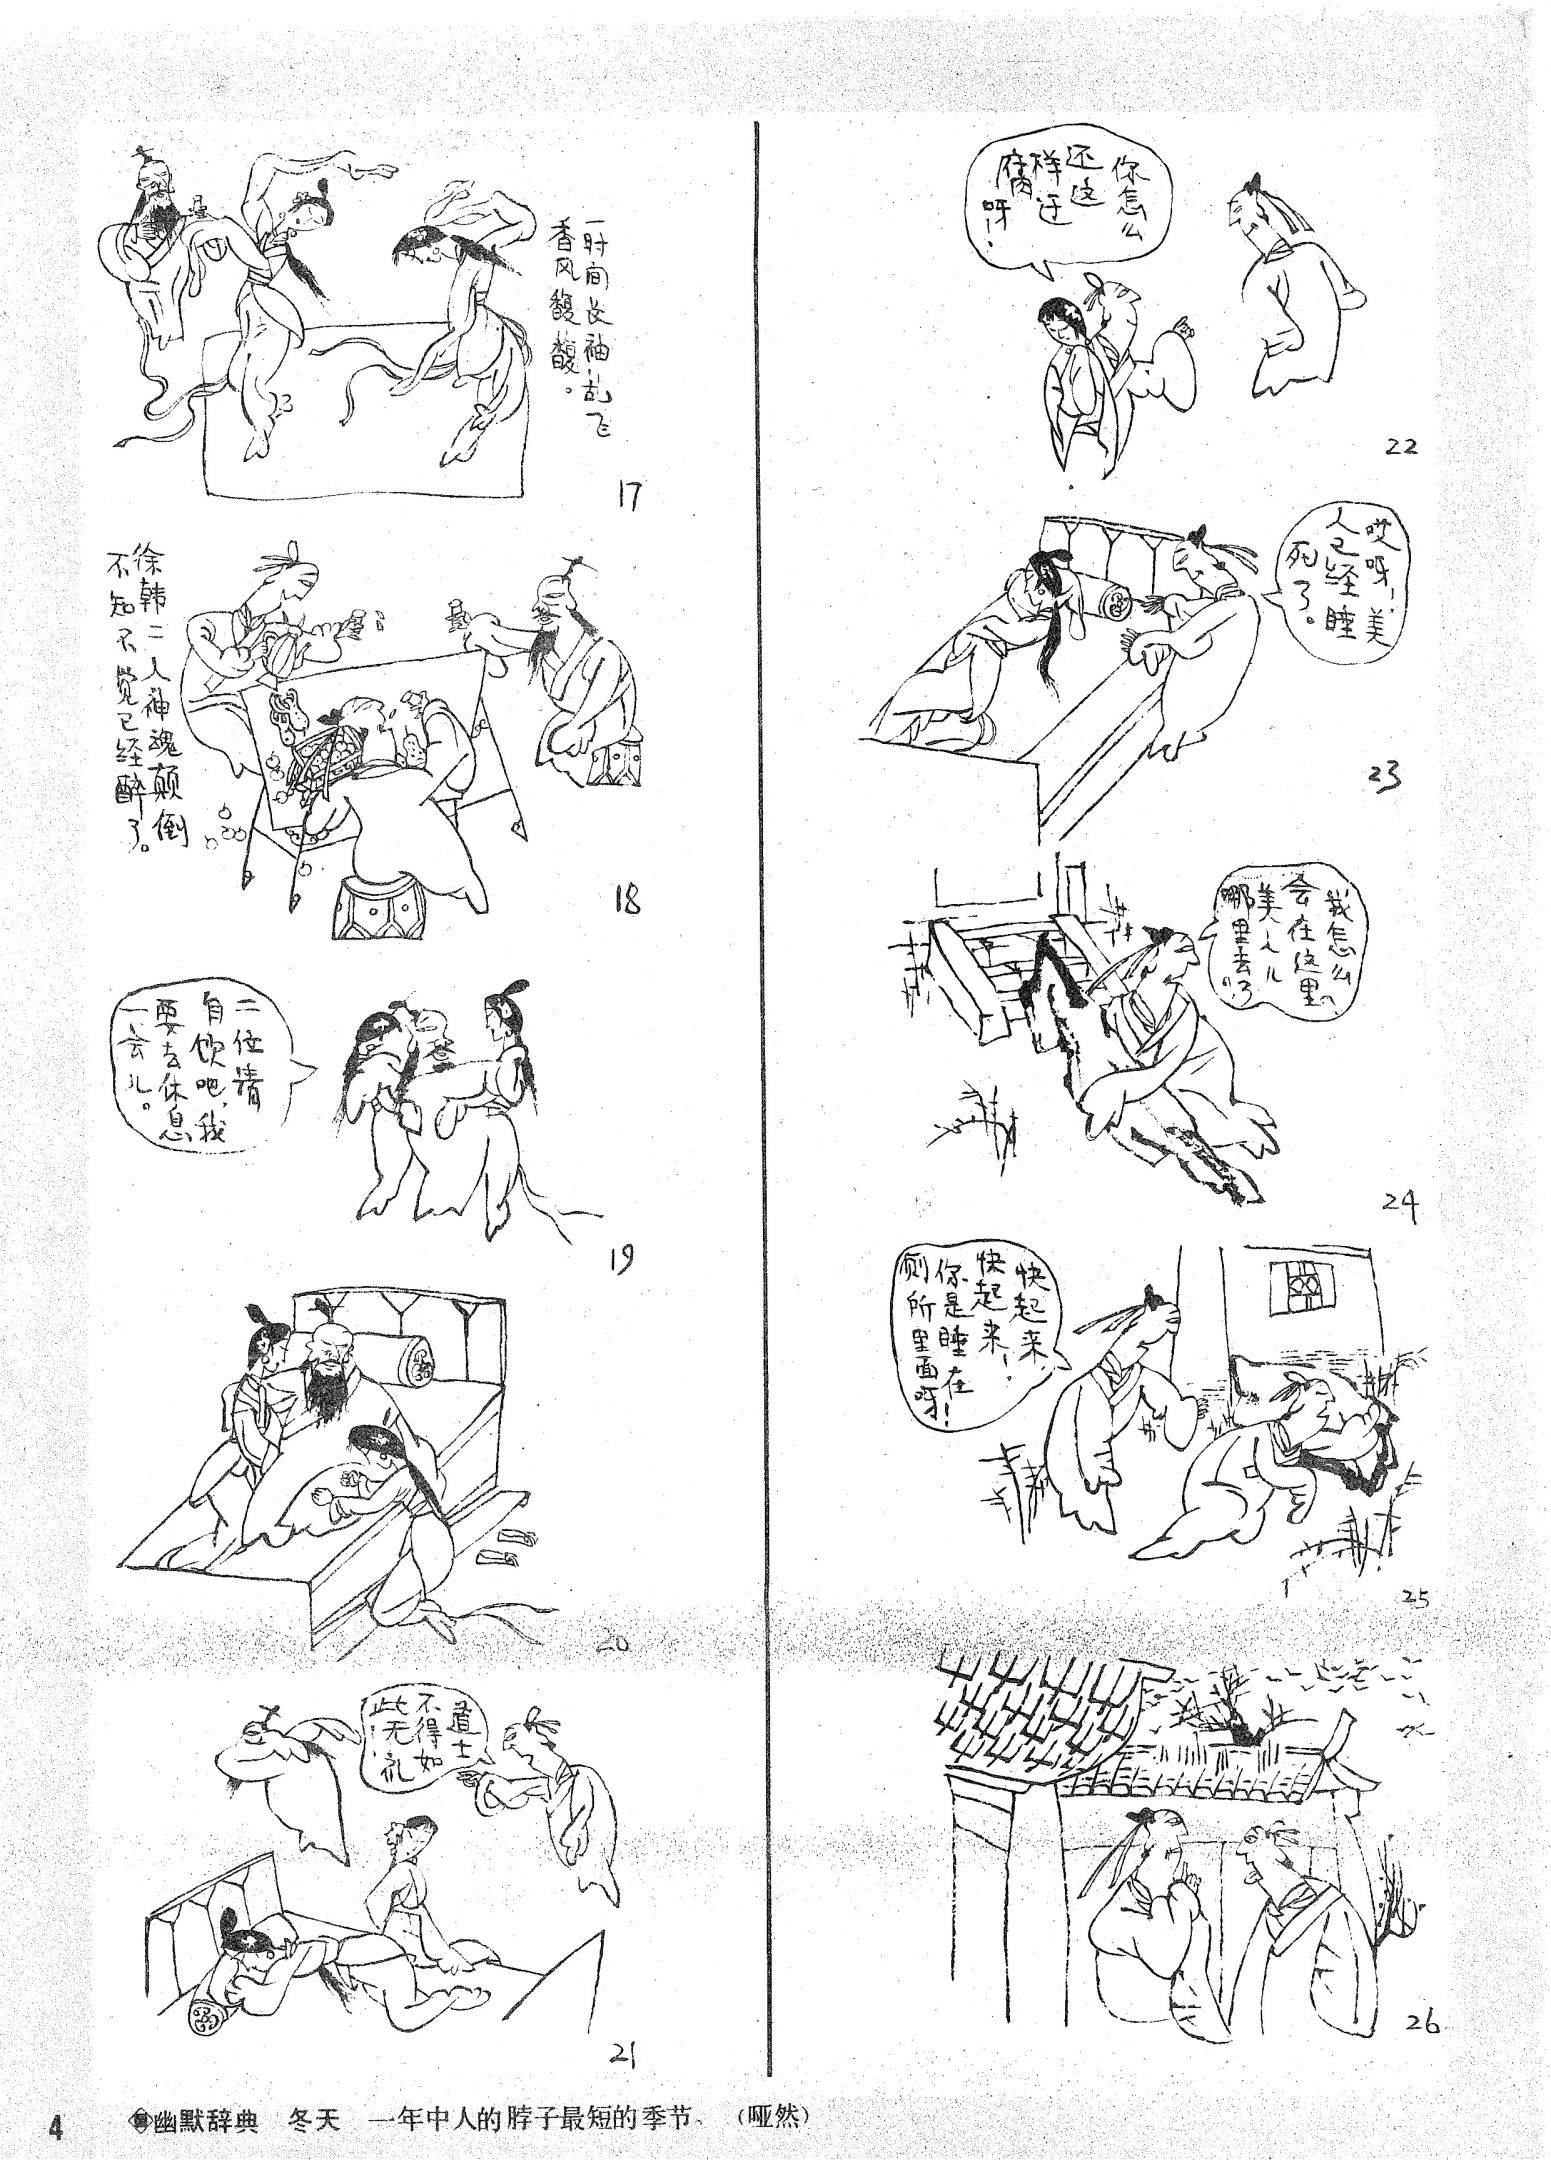 一时间长袖乱飞
香风馥馥。
17
徐韩二人神魂颠倒
不知不觉已经醉了。
18
二位请
自饮吧，我
要去休息
一会儿。
19
20
道士
不得如
此无礼！
21
你怎么
还这
样迂
腐呀！
22
哎呀！美
人已经睡
死了。
23
我怎么
会在这里、
美人儿
哪里去了
24
快起来！
快起来！
你是睡在
厕所里面呀！
25
26
4
幽默辞典 冬天 一年中人的脖子最短的季节。（哑然）